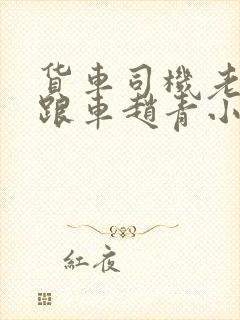 货車司機老
跟車趙青小
紅夜